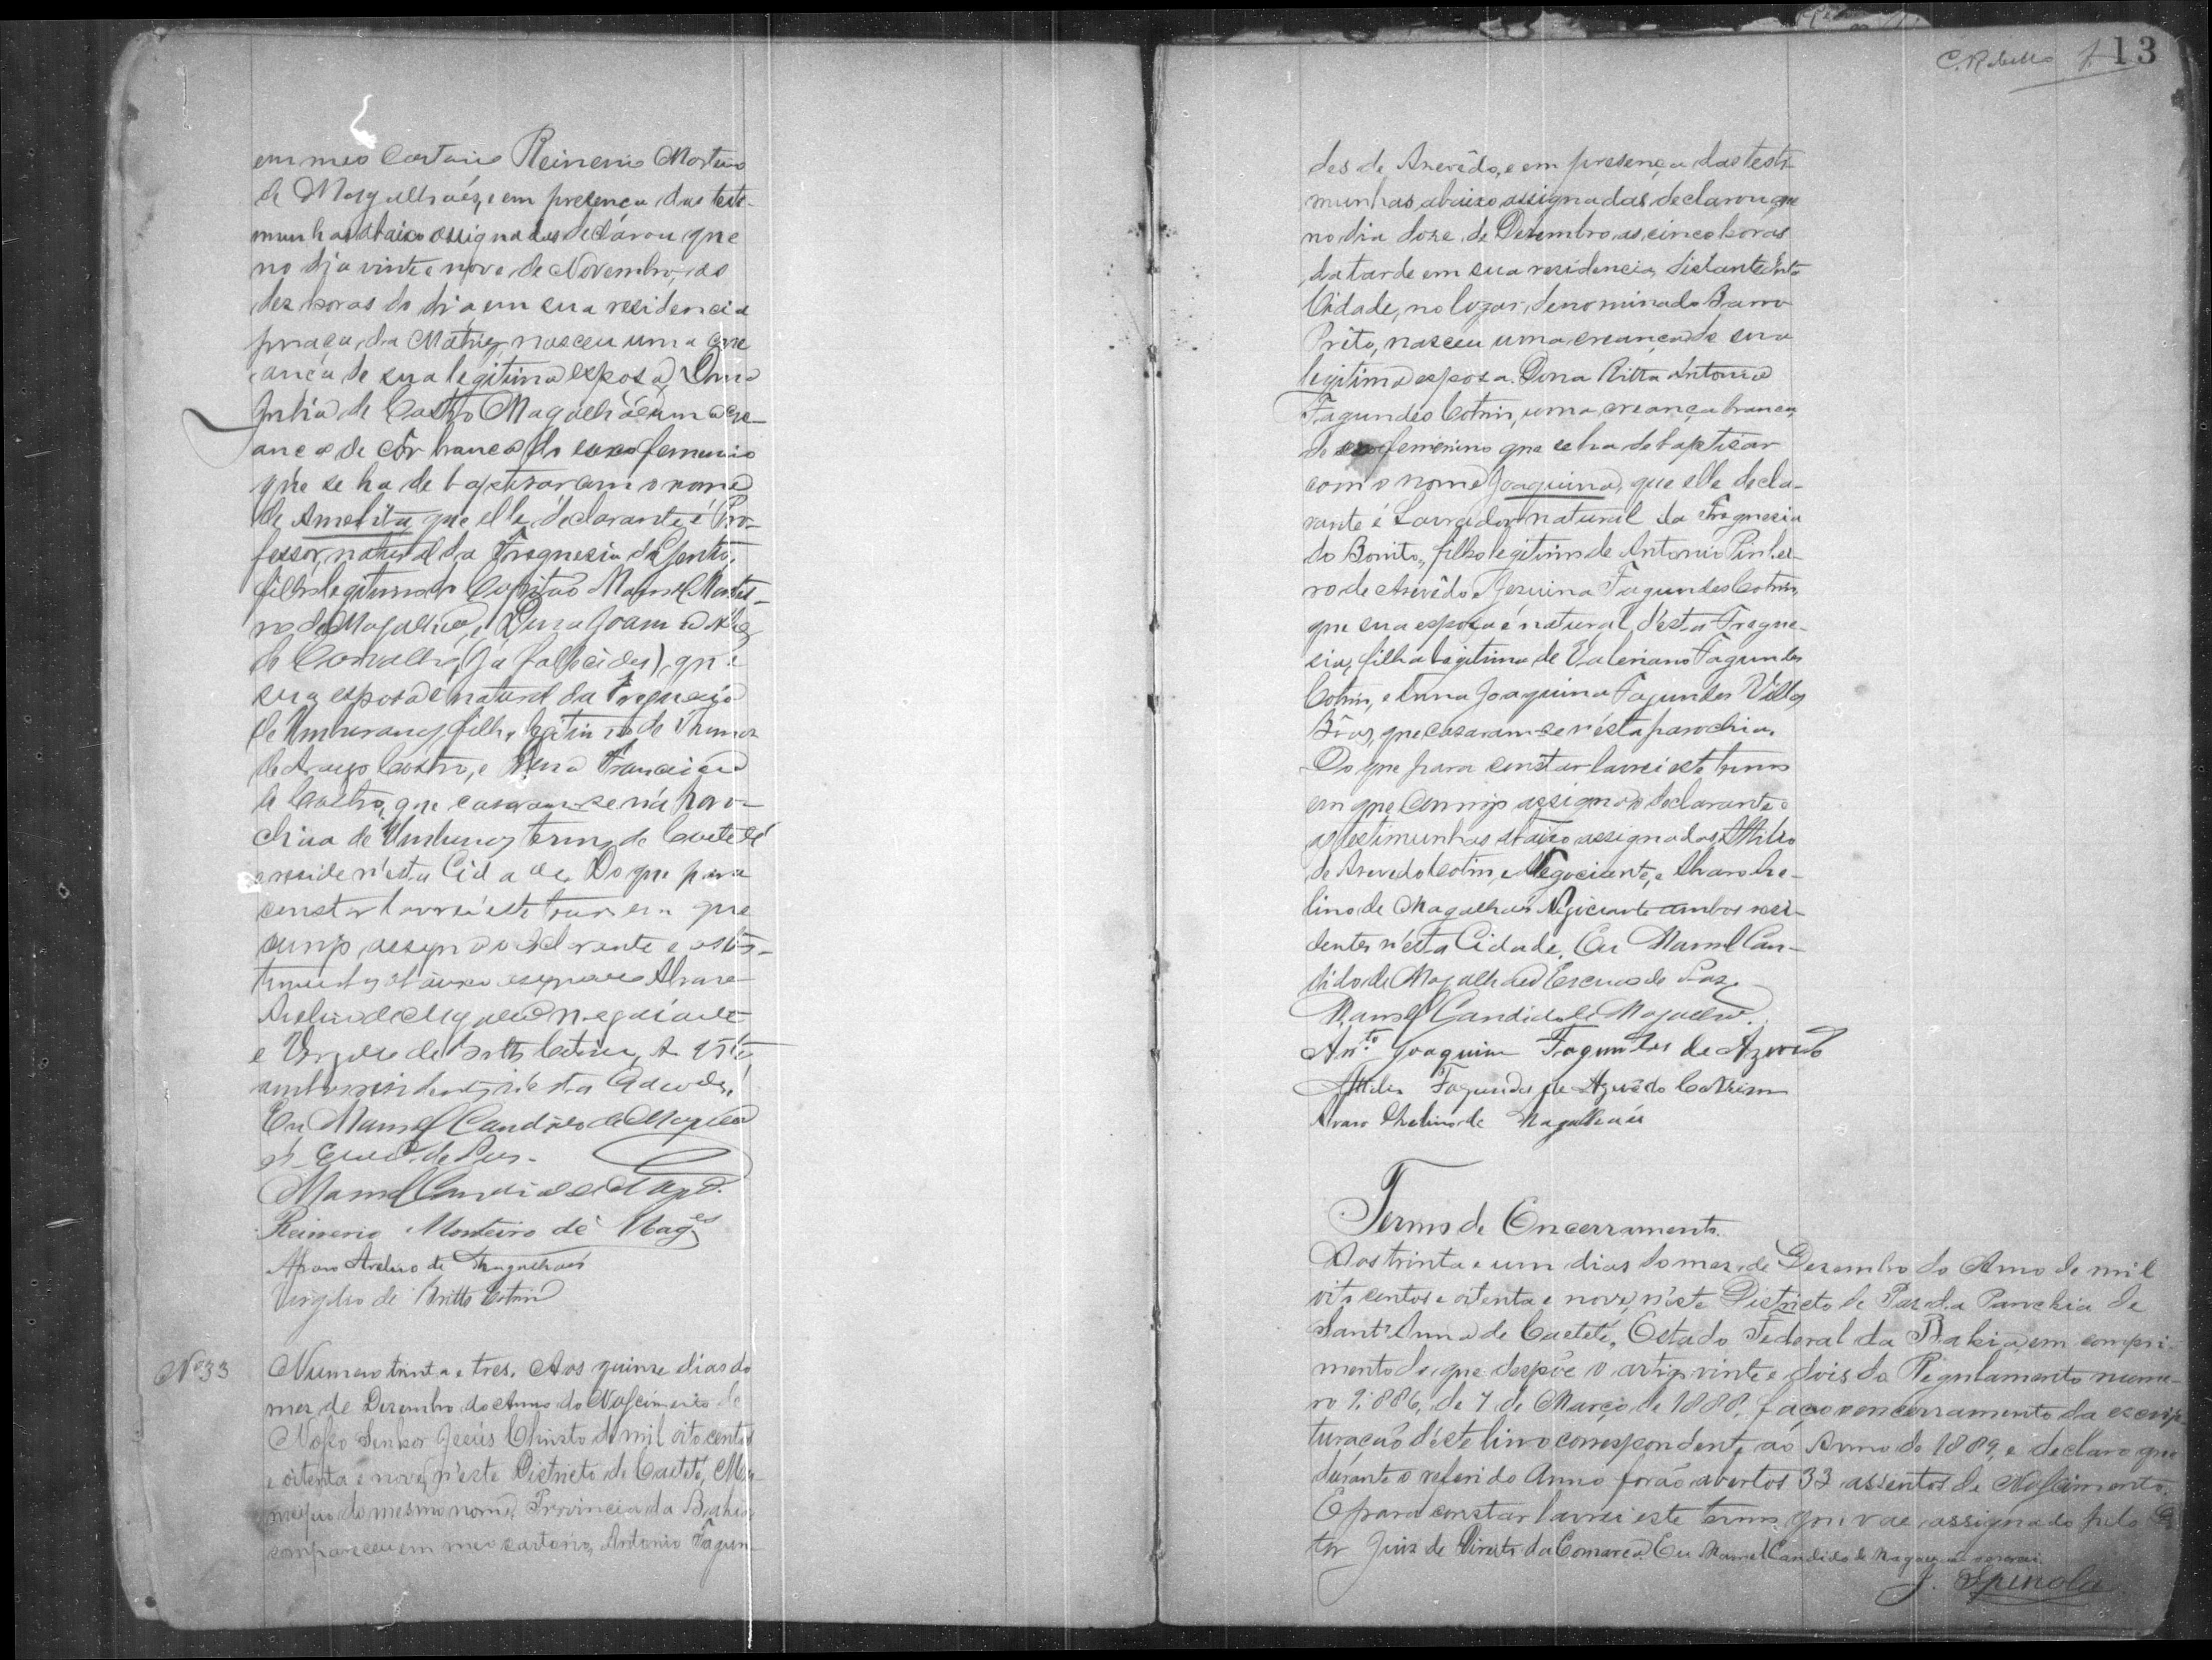 em meo Cartorio Reinerio Monteiro
de Magalhaés, e em presença das teste-
munhas abaixo assignadas declarou que
no dia vinte e nove de Novembro, as
dez horas do dia, em sua residencia
praça da Matriz, nasceu uma cre
ança de sua legitima esposa, Dona
Julia de Castro Magalhães uma cre-
ança de côr branca do sexo feminino
que se ha de baptisar com o nome
de Amelita, que elle declarante é Pro-
fessor, natural da Freguesia do Gentio,
filho legitimo do Capitão Manoel Montei-
ro de Magalhães, e Dona Joanna
de Carvalho, (já fallecidos), que
sua esposa é natural da Freguesia
de Umburanas, filha legitima de
de Araujo Castro, e Dona Francisca
de Castro, que casaram-se n'a paro-
chia de Umburanas termo de Caeteté
e reside n'esta Cidade. Do que para
constar lavrei este termo em que
comigo assignão o declarante e as tes-
timunhas abaixo assignadas Alvaro
Avelino de Magalhães negociante
e Virgilio de Britto Cotrim,
ambos residentes n'esta Cidade.
Eu Manoel Candido de Magalhães
Escrivão de Paz.
Manoel Candido de Mag.
Reinerio Monteiro de Mag.es
Alvaro Avelino de Magalhaés
Virgilio de Britto Cotrim
Nº 33
Numero trinta e tres. Aos quinze dias do
mez de Dezembro do Anno do Nascimento de
Nosso Senhor Jesús Christo de mil oito centos
e oitenta e nove, n'este Districto de Caeteté, Mu-
nicipio do mesmo nome, Provincia da Bahia
compareceu em meo cartorio, Antonio Fagun-
C. Rebello f. 13
des de Azevêdo, e em presença das teste
munhas abaixo assignadas declarou que
no dia doze de Dezembro, as cinco horas
da tarde em sua residencia, distante d'esta
Cidade, no logar denominado Barro
Prêto, nasceu uma creança de sua
legitima esposa. Dona Ritta Antonia
Fagundes Cotrim, uma creança branca
do sexo feminino que se ha de baptisar
com o nome Joaquina, que elle decla-
rante é Lavrador natural da Freguesia
do Bonito, filho legitimo de Antonio Pinhei-
ro de Azevêdo e Jesuina Fagundes Cotrim,
que sua esposa é natural d'esta Fregue-
sia, filha legitima de Valeriano Fagundes
Cotrim, e Anna Joaquina Fagundes Villas
Bôas, que casaram-se n'esta parochia.
Do que para constar lavrei este termo
em que comigo assigna o declarante e
as testimunhas abaixo assignadas Attilio
de Azevedo Cotrim, Negociante, e Alvaro Ave-
lino de Magalhães Negociante ambos resi-
dentes n'esta Cidade. Eu Manoel Can-
dido de Magalhães Escrivão de Paz.
Manoel Candido de Magalhães.
An.to Joaquim Fagundes de Azevedo
Attilio Fagundes de Azevêdo Cotrim
Alvaro Avelino de Magalhães
Termo de Encerramento.
Aos trinta e um dias do mez de Dezembro do Anno de mil
oito centos e oitenta e nove, n'este Districto de Paz da Parochia de
Sant'Anna de Caeteté, Estado Federal da Bahia, em compri-
mento do que despõe o artigo vinte e dois do Regulamento nume-
ro 9:886, de 7 de Março de 1888, faço o encerramento da escrip-
turação d'este livro correspondente ao Anno de 1889, e declaro que
durante o referido Anno forão abertos 33 assentos de Nascimento.
E para constar lavrei este termo que vae assignado pelo Dou
tor Juiz de Direito da Comarca. Eu Manoel Candido de Magalhães o escrevi.
J. Spinola